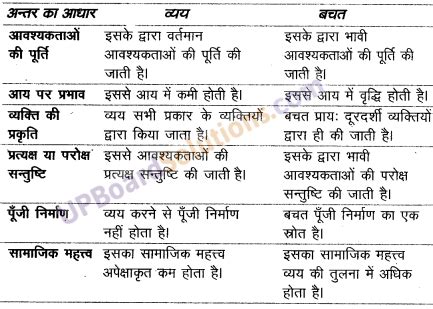 अन्तर का आधार व्यय बचत
आवश्यकताओं इसके द्वारा वर्तमान इसके द्वारा भावी
की पूर्ति आवश्यकताओं की पूर्ति की आवश्यकताओं की पूर्ति की
जाती है। जाती है।
आय पर प्रभाव इससे आय में कमी होती है। इससे आय में वृद्धि होती है।
व्यक्ति की व्यय सभी प्रकार के व्यक्तियों बचत प्रायः दूरदर्शी व्यक्तियों
प्रकृति द्वारा किया जाता है। द्वारा ही की जाती है।
प्रत्यक्ष या परोक्ष इससे आवश्यकताओं की इसके द्वारा भावी
सन्तुष्टि प्रत्यक्ष सन्तुष्टि की जाती है। आवश्यकताओं की परोक्ष
सन्तुष्टि की जाती है।
पूँजी निर्माण व्यय करने से पूँजी निर्माण बचत पूँजी निर्माण का एक
नहीं होता है। स्रोत है।
सामाजिक महत्त्व इसका सामाजिक महत्त्व इसका सामाजिक महत्त्व
अपेक्षाकृत कम होता है। व्यय की तुलना में अधिक
होता है।
UPBoardSolutions.com